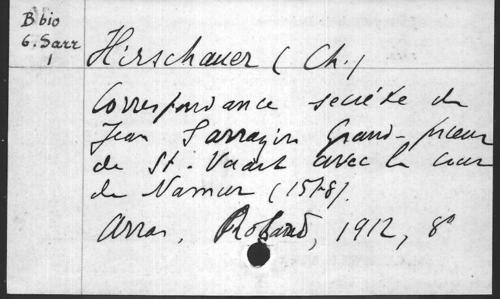 B bio
6. Sarr
1
Hirschauer (Ch.)
Correspondance secrète de
Jean Sarrazin Grand-prieur
de St-Vaast avec la cour
de Namur (1578).
Arras, 1912, 8°